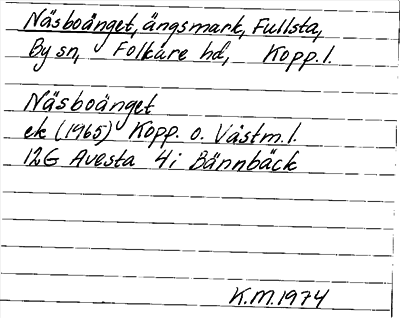 Näsboänget, ängsmark, Fullsta,
By sn, Folkare hd, Kopp. l.
Näsboänget
ek (1965) Kopp. o. Västm. l.
12G Avesta 4i Bännbäck
K.M. 1974